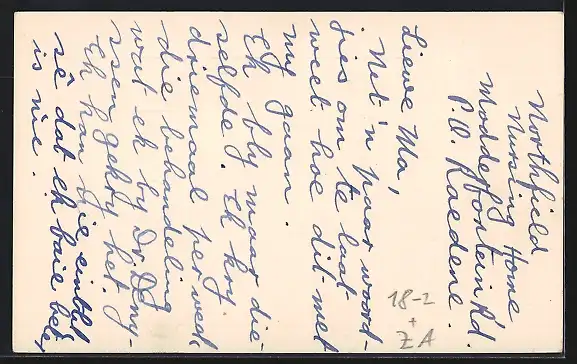 Northfield
Nursing Home
Modderfontein Rd.
P.O. Raedene.
Liewe Ma,
Net 'n paar woord-
jies om te laat
weet hoe dit met
my gaan.
Ek bly maar die-
selfde. Ek kry
driemaal per week
die behandeling
wat ek by Dr. Deny-
ssen gekry het.
Ek kan nie eintlik
sê dat ek baie beter
is nie.
18-2
+
ZA